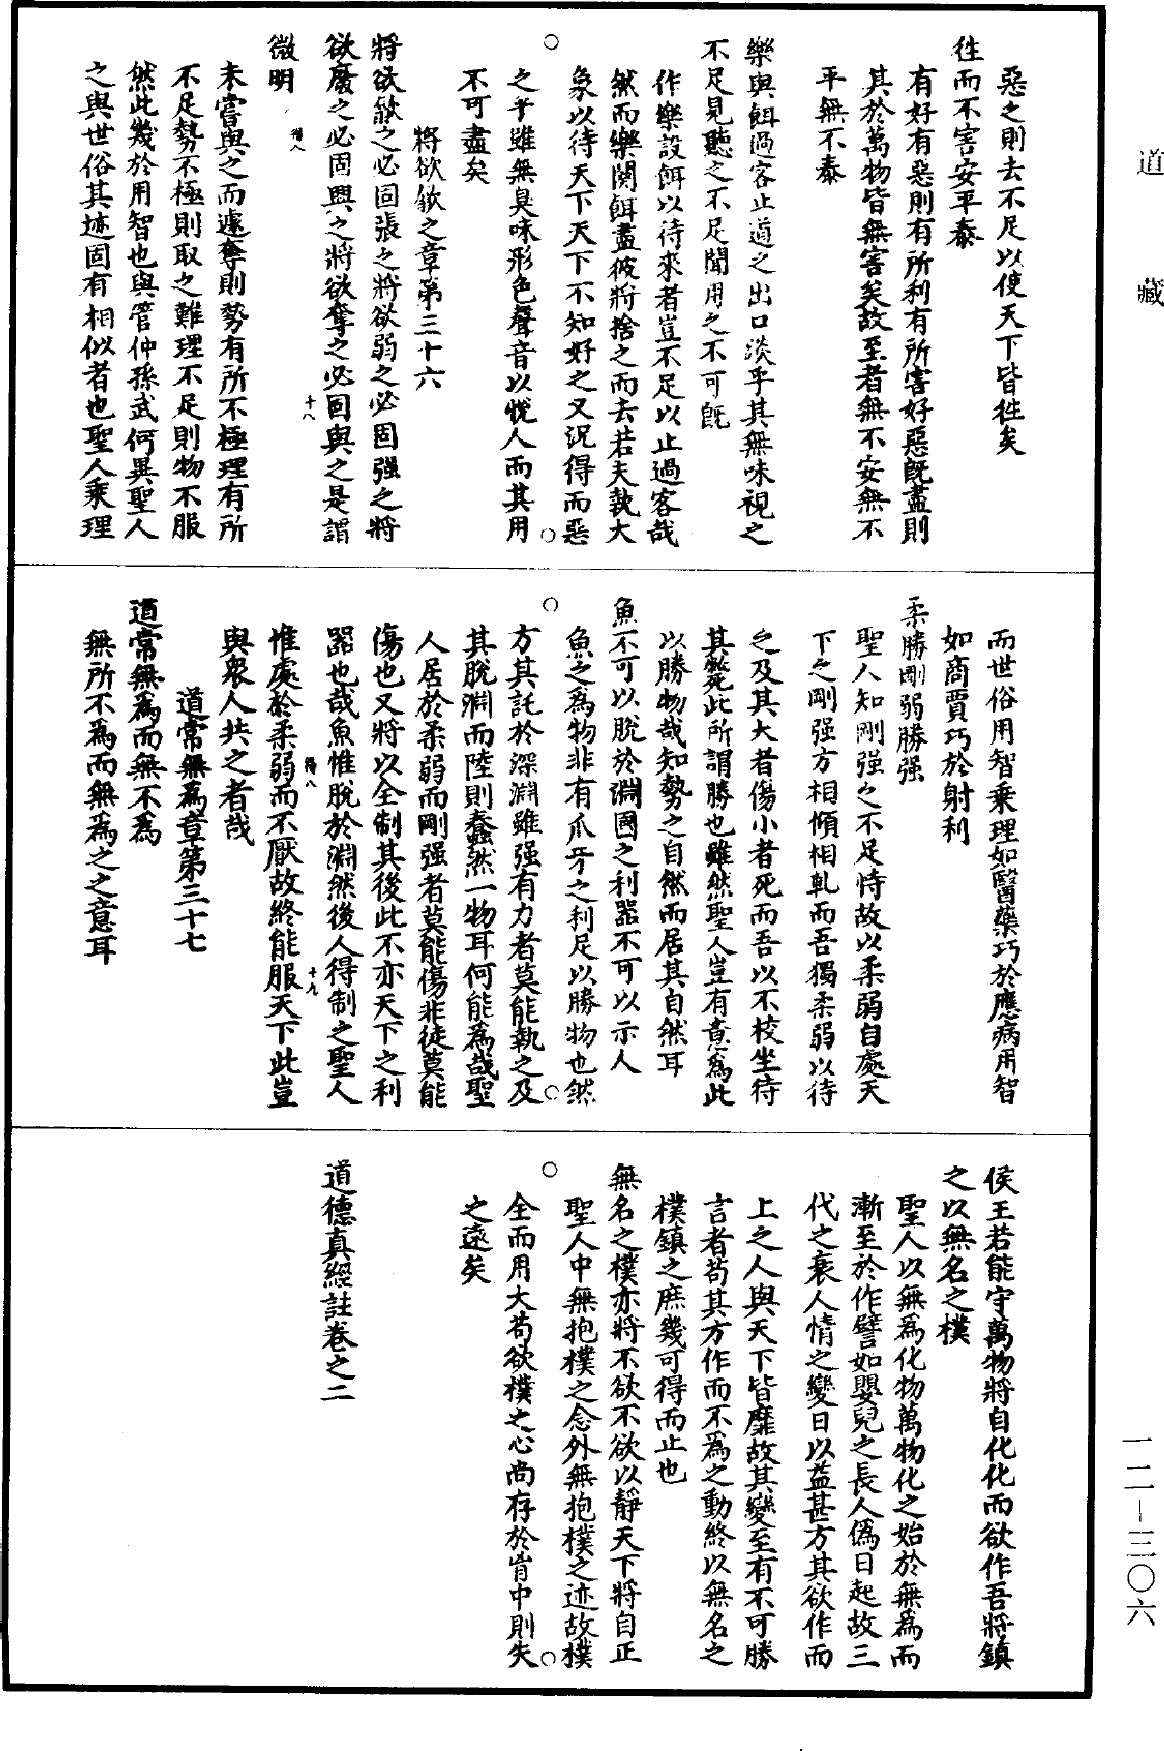 道藏
惡之則去不足以使天下皆徃矣
徃而不害安平泰
有好有惡則有所利有所害好惡旣盡則
其於萬物皆無害矣故至者無不安無不
平無不泰
樂與餌過客止道之出口淡乎其無味視之
不足見聽之不足聞用之不可旣
作樂設餌以待來者豈不足以止過客哉
然而樂闋餌盡彼將捨之而去若夫執大
象以待天下天下不知好之又況得而惡
之乎雖無臭味形色聲音以悅人而其用
不可盡矣
將欲歙之章第三十六
將欲歙之必固張之將欲弱之必固强之將
欲廢之必固興之將欲奪之必固與之是謂
微明
未嘗與之而遽奪則勢有所不極理有所
不足勢不極則取之難理不足則物不服
然此幾於用智也與管仲孫武何異聖人
之與世俗其迹固有相似者也聖人乘理
而世俗用智乘理如醫藥巧於應病用智
如商賈巧於射利
柔勝剛弱勝强
聖人知剛强之不足恃故以柔弱自處天
下之剛强方相傾相軋而吾獨柔弱以待
之及其大者傷小者死而吾以不校坐待
其斃此所謂勝也雖然聖人豈有意爲此
以勝物哉知勢之自然而居其自然耳
魚不可以脫於淵國之利器不可以示人
魚之爲物非有爪牙之利足以勝物也然
方其託於深淵雖强有力者莫能執之及
其脫淵而陸則蠢然一物耳何能爲哉聖
人居於柔弱而剛强者莫能傷非徒莫能
傷也又將以全制其後此不亦天下之利
器也哉魚惟脫於淵然後人得制之聖人
惟處於柔弱而不厭故終能服天下此豈
與衆人共之者哉
道常無爲章第三十七
道常無爲而無不爲
無所不爲而無爲之之意耳
侯王若能守萬物將自化化而欲作吾將鎮
之以無名之樸
聖人以無爲化物萬物化之始於無爲而
漸至於作譬如嬰兒之長人僞日起故三
代之衰人情之變日以益甚方其欲作而
上之人與天下皆靡故其變至有不可勝
言者苟其方作而不爲之動終以無名之
樸鎮之庶幾可得而止也
無名之樸亦將不欲不欲以靜天下將自正
聖人中無抱樸之念外無抱樸之迹故樸
全而用大苟欲樸之心尚存於胷中則失
之遠矣
道德真經註卷之二
一二-三〇六